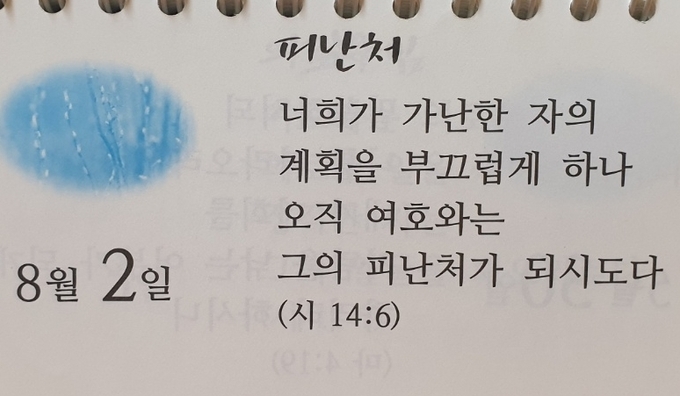 피난처
너희가 가난한 자의
계획을 부끄럽게 하나
오직 여호와는
그의 피난처가 되시도다
(시 14:6)
8월 2일